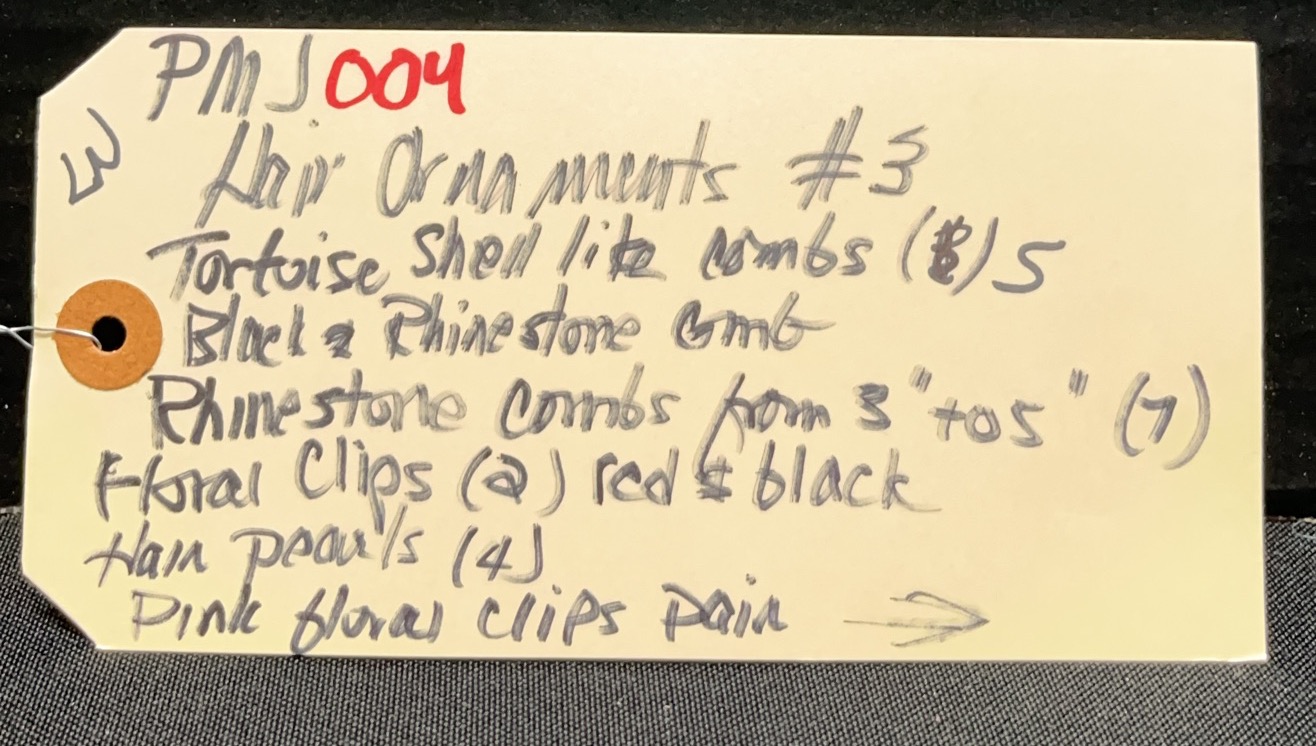 PMJ 004
W
Hair Ornaments #3
Tortoise shell like combs () 5
Black & Rhinestone Comb
Rhinestone combs from 3" to 5" (7)
Floral Clips (2) red & black
Hair pearls (4)
Pink floral clips pair →